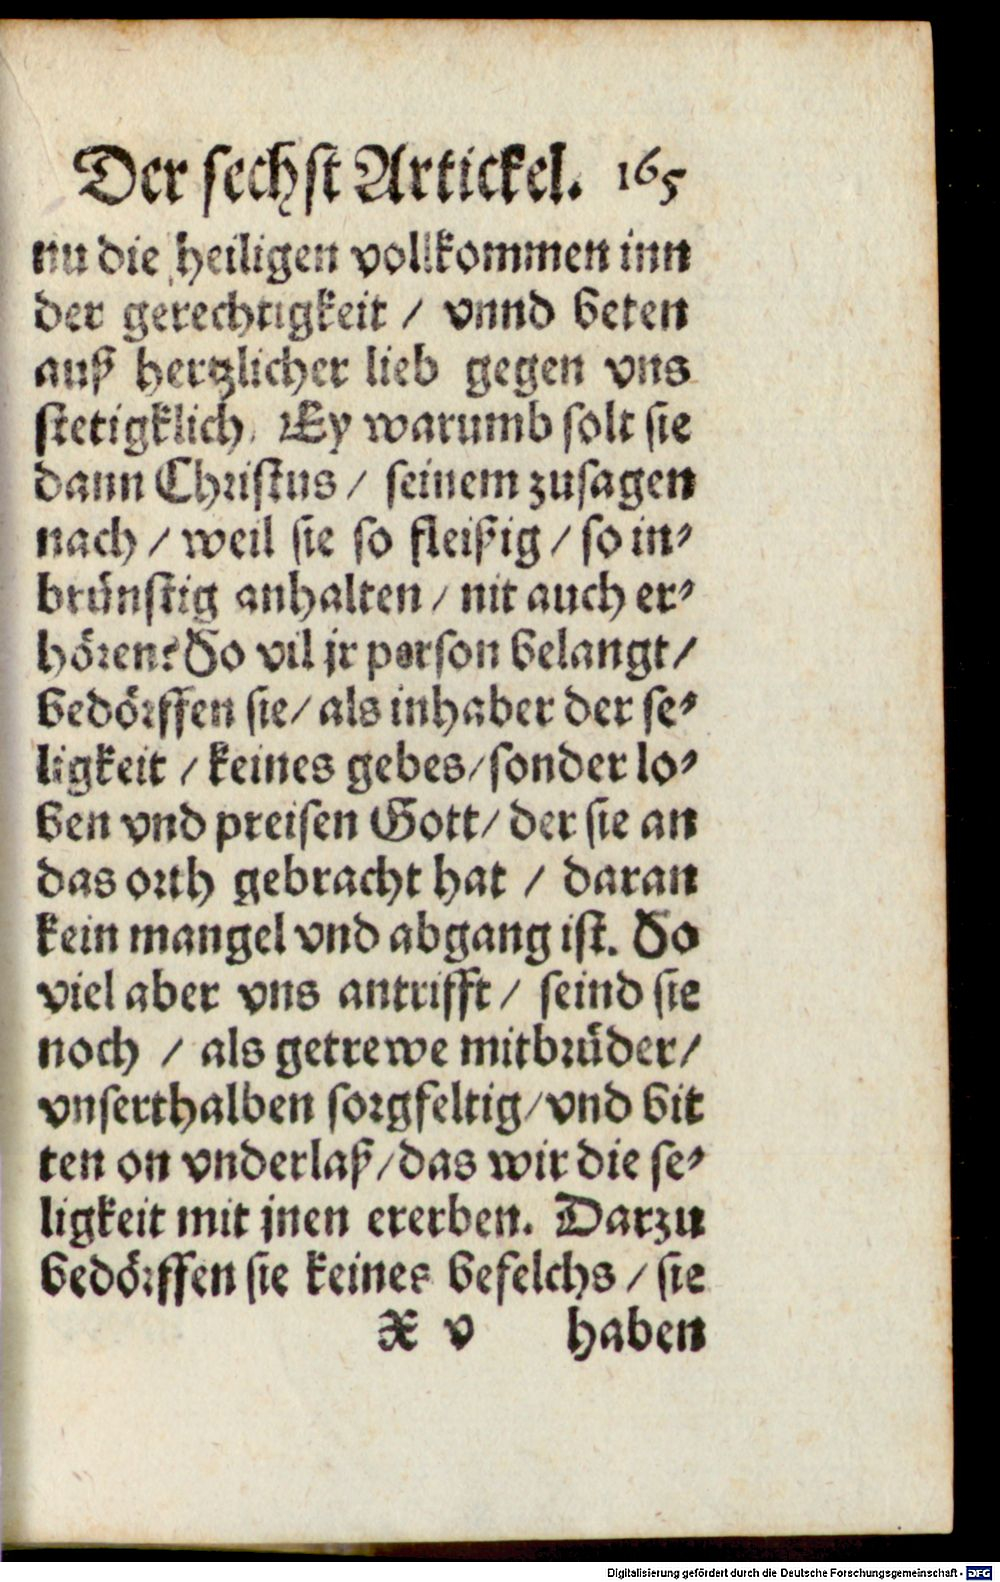 Der sechst Artickel. 165
nu die heiligen vollkommen inn
der gerechtigkeit / vnnd beten
auß hertzlicher lieb gegen vns
stetigklich, Ey warumb solt sie
dann Christus / seinem zusagen
nach / weil sie so fleißig / so in⸗
brünstig anhalten / nit auch er⸗
hören? So vil jr person belangt /
bedörffen sie / als inhaber der se⸗
ligkeit / keines gebes / sonder lo⸗
ben vnd preisen Gott / der sie an
das orth gebracht hat / daran
kein mangel vnd abgang ist. So
viel aber vns antrifft / seind sie
noch / als getrewe mitbrüder /
vnserthalben sorgfeltig / vnd bit
ten on vnderlaß / das wir die se⸗
ligkeit mit jnen ererben. Darzu
bedörffen sie keines befelchs / sie
X v haben
Digitalisierung gefördert durch die Deutsche Forschungsgemeinschaft - DFG